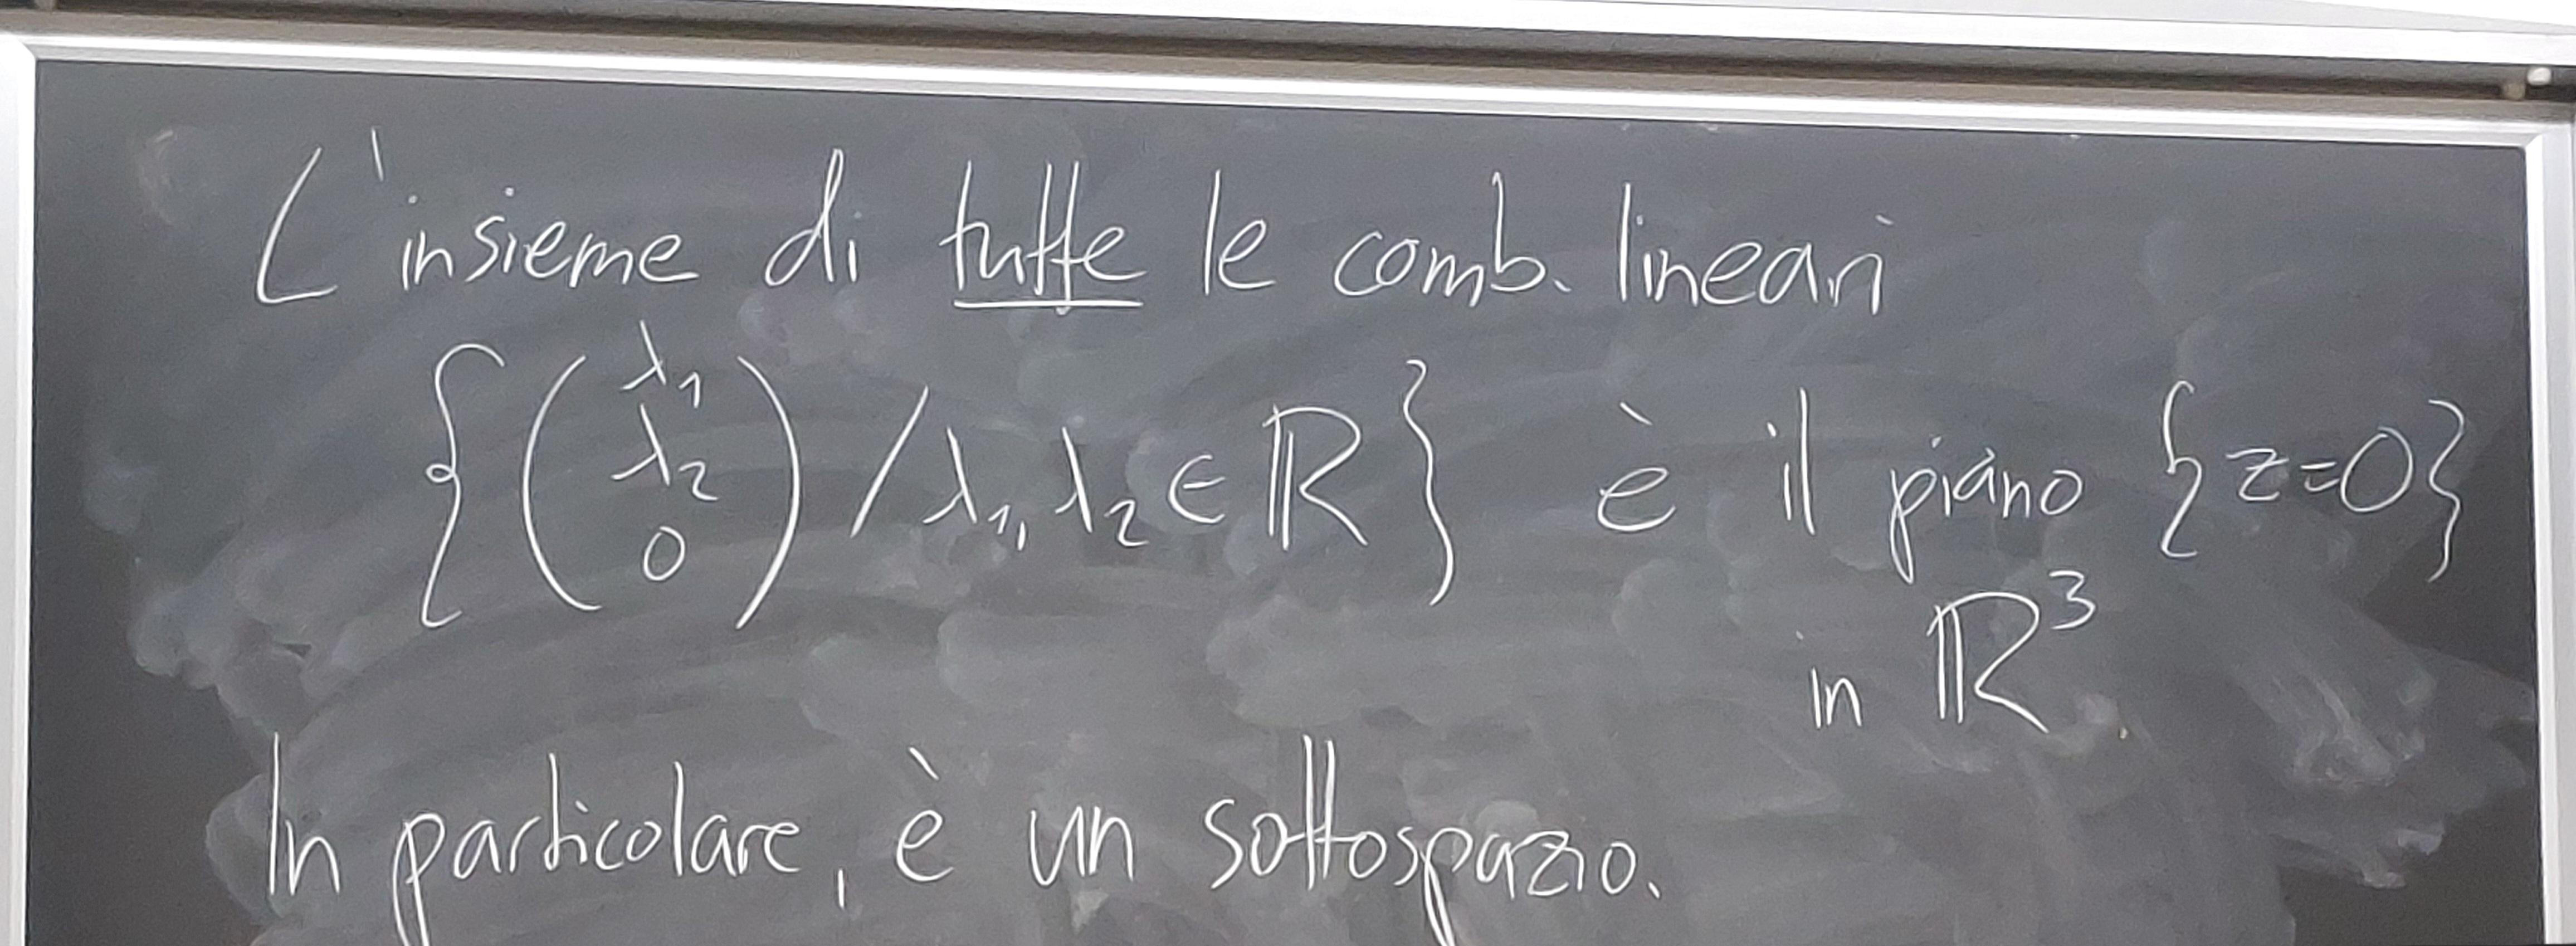 L'insieme di tutte le comb. lineari
{(λ₁ λ₂ 0) / λ₁, λ₂ ∈ ℝ} è il piano {z=0}
in ℝ³.
In particolare, è un sottospazio.